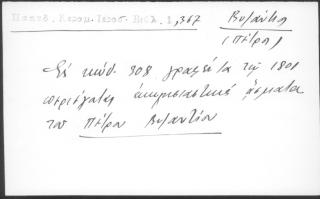 Παπαδ. Κεραμ. Ιεροσ. Βιβλ. 1, 367
Βυζάντιος
(Πέτρος)
Εν κώδ. 308 γραφέντα τω 1801
περιέχεται εκκλησιαστικά άσματα
του Πέτρου Βυζαντίου